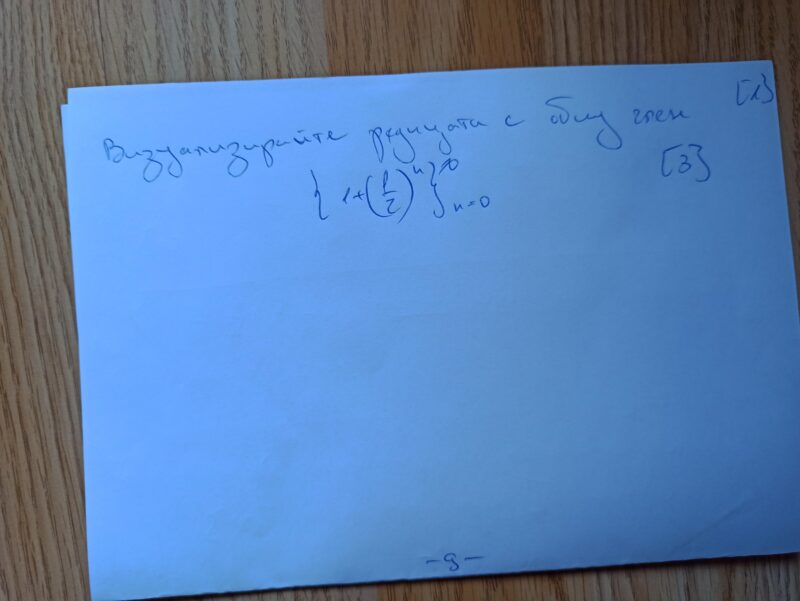 Визуализирайте редицата с общ член [1]
{1+(1/2)^n}^∞_{n=0} [3]
-9-